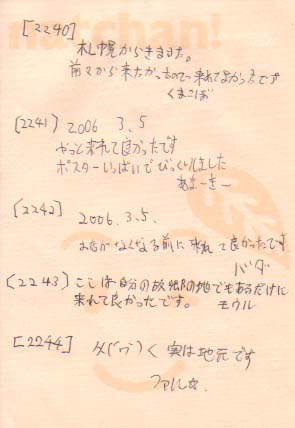 natchan!
[2240]
札幌からきました。
前々から来たかったので来れてよかったです
くまこば
[2241] 2006 3.5
やっと来れて良かったです
ポスターいっぱいでびっくりしました
あきーきー
[2242]
2006.3.5.
お店がなくなる前に来れて良かったです
バダ
[2243] ここは自分の故郷の地でもあるだけに
来れて良かったです。 モウル
[2244] 実は地元です